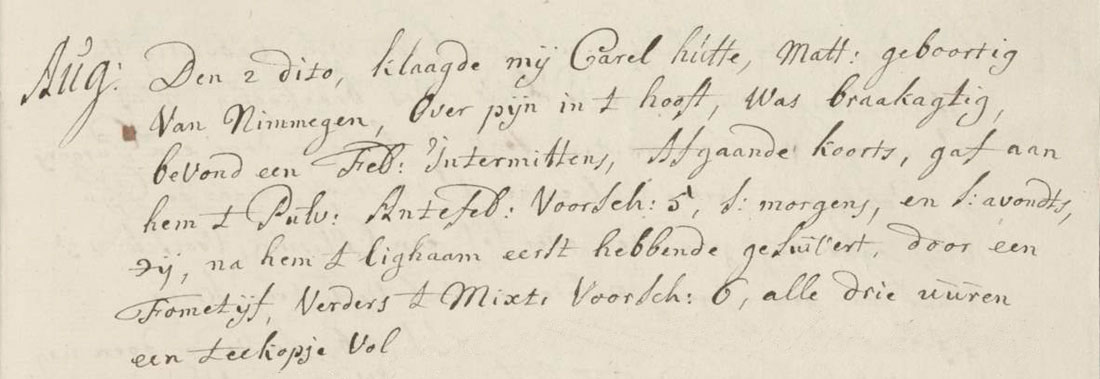 Aug: Den 2 dito, klaagde mij Carel hütte, Matt: geboortig
Van Nimmegen, Over pijn in t hooft, Was braakagtig,
bevond een Feb: Intermittens, Afgaande koorts, gaf aan
hem t Pulv: Antefeb: Voorsch: 5, s: morgens, en s: avondts,
ʒij, na hem t lighaam eerst hebbende gesuivert, door een
Fometijf, Verders t Mixt: Voorsch: 6, alle drie uuren
een teekopje Vol